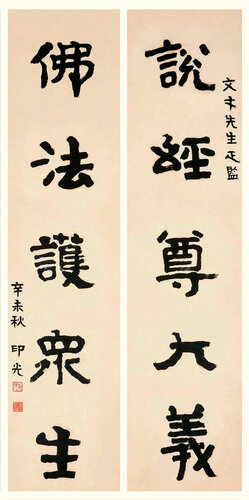 文 先生正監
說經尊大義
佛法護眾生
辛未秋 印光